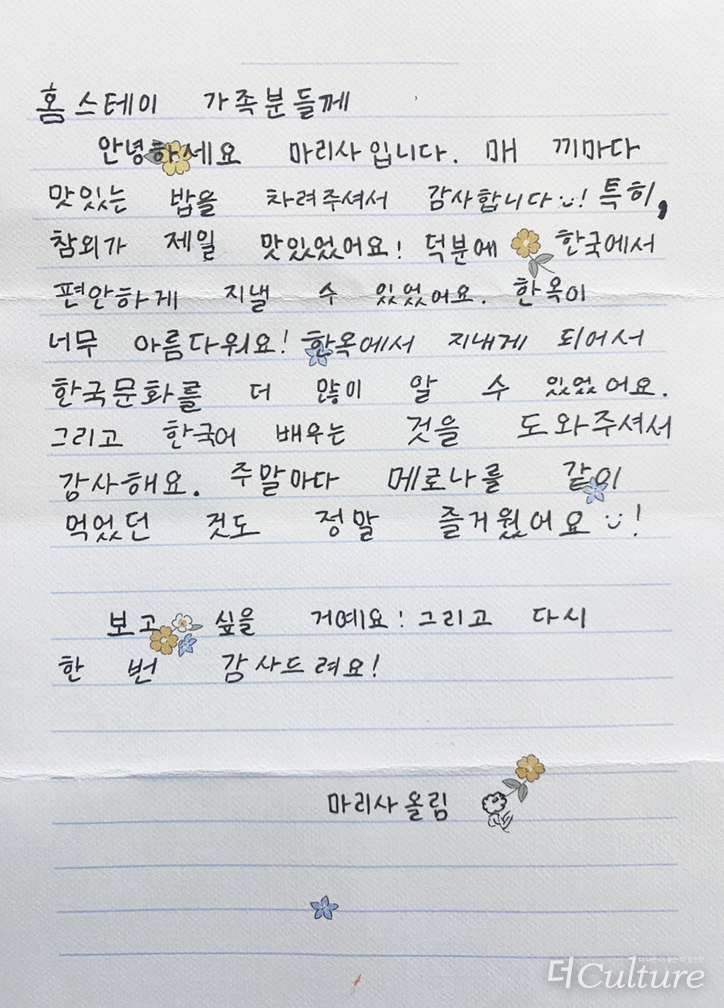 홈스테이 가족분들께
안녕하세요 마리사입니다. 매 끼마다
맛있는 밥을 차려주셔서 감사합니다! 특히,
참외가 제일 맛있었어요! 덕분에 한국에서
편안하게 지낼 수 있었어요. 한옥이
너무 아름다워요! 한옥에서 지내게 되어서
한국문화를 더 많이 알 수 있었어요.
그리고 한국어 배우는 것을 도와주셔서
감사해요. 주말마다 메로나를 같이
먹었던 것도 정말 즐거웠어요!
보고 싶을 거예요! 그리고 다시
한 번 감사드려요!
마리사 올림
더Culture